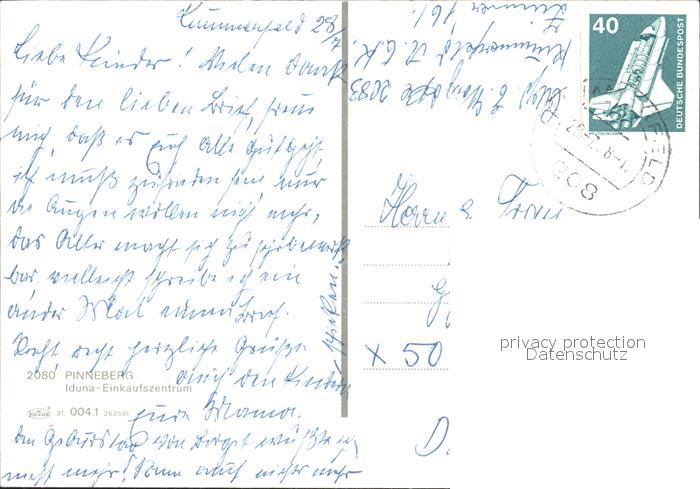 Kummerfeld 28/7
Liebe Kinder! Vielen Dank
für den lieben Brief, freue
mich, daß es Euch alle gut geht.
ich muß zufrieden sein, nur
die Augen wollen nicht mehr,
das Alter macht sich
bar vielleicht schreibe ich ein
ander Mal einen Brief.
Recht recht herzliche Grüße
auch den Kindern
eure Mama.
den Geburtstag von Birgit wußte ich
nicht mehr, kann auch nicht mehr
schreiben.
2080 PINNEBERG
Iduna-Einkaufszentrum
31. 004.1 263581
Kummerfeld
2083
Zimmer 161.
40
DEUTSCHE BUNDESPOST
Herrn u Frau
x 50
privacy protection
Datenschutz